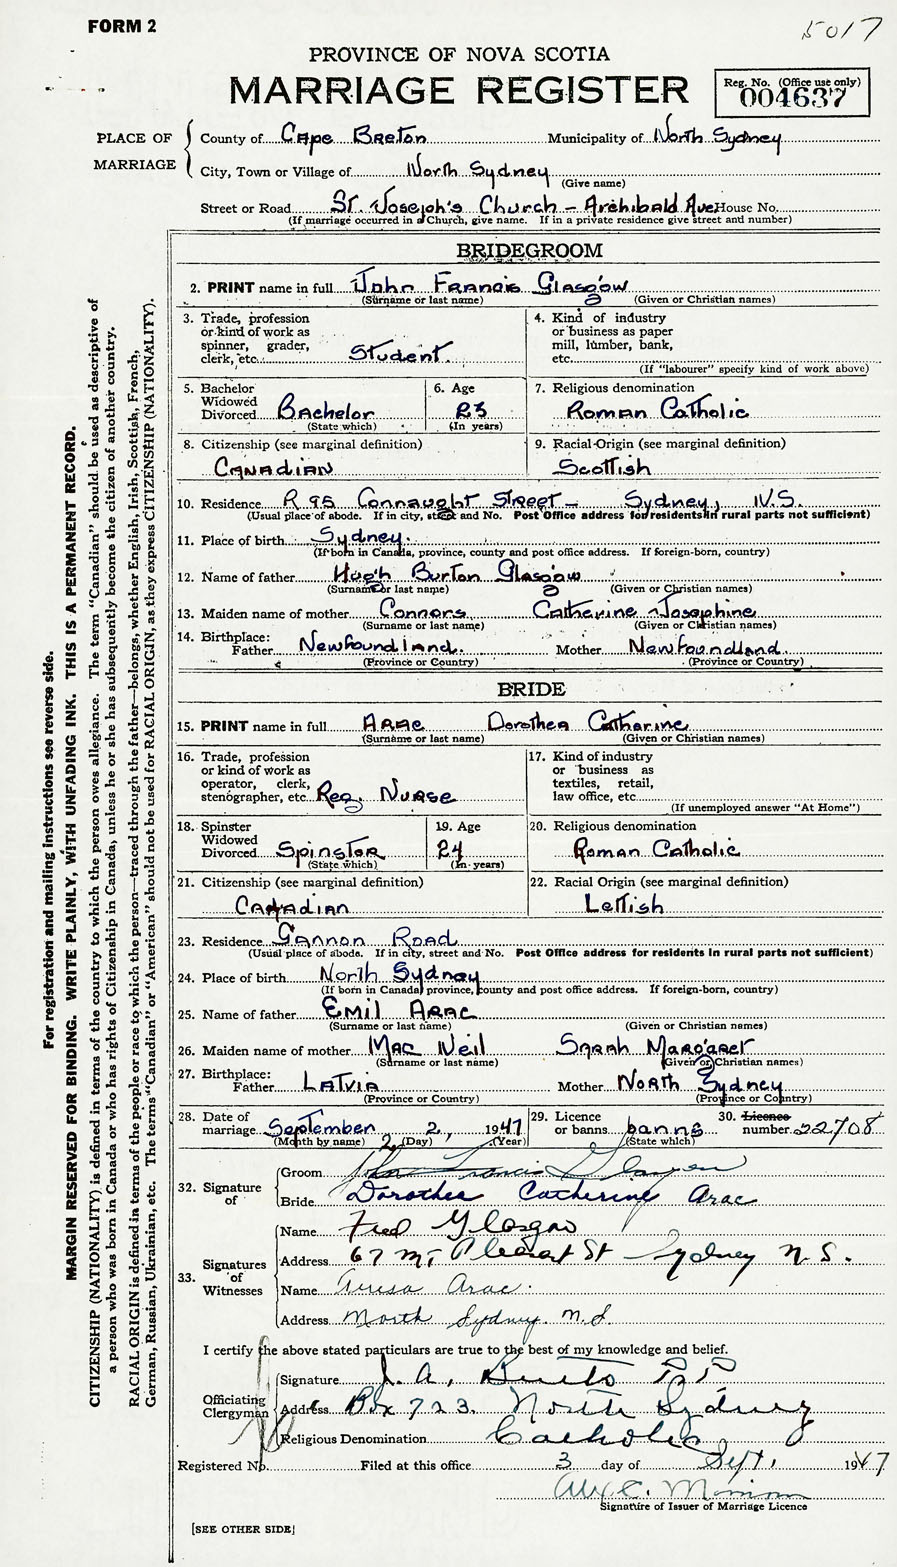 FORM 2
5017
PROVINCE OF NOVA SCOTIA
MARRIAGE REGISTER
Reg. No. (Office use only)
004637
PLACE OF MARRIAGE
County of Cape Breton Municipality of North Sydney
City, Town or Village of North Sydney
(Give name)
Street or Road St. Joseph's Church – Archibald Ave. House No.
(If marriage occurred in a Church, give name. If in a private residence give street and number)
BRIDEGROOM
2. PRINT name in full John Francis Glasgow
(Surname or last name) (Given or Christian names)
3. Trade, profession or kind of work as spinner, grader, clerk, etc. Student
4. Kind of industry or business as paper mill, lumber, bank, etc.
(If "labourer" specify kind of work above)
5. Bachelor Widowed Divorced Bachelor
(State which)
6. Age 23
(In years)
7. Religious denomination
Roman Catholic
8. Citizenship (see marginal definition)
Canadian
9. Racial Origin (see marginal definition)
Scottish
10. Residence R 95 Connaught Street – Sydney, N.S.
(Usual place of abode. If in city, street and No. Post Office address for residents in rural parts not sufficient)
11. Place of birth Sydney.
(If born in Canada, province, county and post office address. If foreign-born, country)
12. Name of father Hugh Burton Glasgow
(Surname or last name) (Given or Christian names)
13. Maiden name of mother Connors Catherine Josephine
(Surname or last name) (Given or Christian names)
14. Birthplace:
Father Newfoundland. Mother Newfoundland.
(Province or Country) (Province or Country)
BRIDE
15. PRINT name in full Arac Dorothea Catharine
(Surname or last name) (Given or Christian names)
16. Trade, profession or kind of work as operator, clerk, stenographer, etc. Reg. Nurse
17. Kind of industry or business as textiles, retail, law office, etc.
(If unemployed answer "At Home")
18. Spinster Widowed Divorced Spinster
(State which)
19. Age 24
(In years)
20. Religious denomination
Roman Catholic
21. Citizenship (see marginal definition)
Canadian
22. Racial Origin (see marginal definition)
Lettish
23. Residence Gannon Road
(Usual place of abode. If in city, street and No. Post Office address for residents in rural parts not sufficient)
24. Place of birth North Sydney
(If born in Canada, province, county and post office address. If foreign-born, country)
25. Name of father Emil Arac
(Surname or last name) (Given or Christian names)
26. Maiden name of mother Mac Neil Sarah Margaret
(Surname or last name) (Given or Christian names)
27. Birthplace:
Father Latvia Mother North Sydney
(Province or Country) (Province or Country)
28. Date of marriage September 2, 1947
(Month by name) 2 (Day) (Year)
29. Licence or banns banns
(State which)
30. Licence number 22708
32. Signature of
Groom John Francis Glasgow
Bride Dorothea Catherine Arac
33. Signatures of Witnesses
Name Fred Glasgow
Address 67 Mt Pleasant St Sydney N.S.
Name Teresa Arac.
Address North Sydney. N.S.
I certify the above stated particulars are true to the best of my knowledge and belief.
Officiating Clergyman
Signature J. A. P.P.
Address Box 723. North Sydney
Religious Denomination Catholic
Registered No. Filed at this office 3 day of Sept. 1947
Signature of Issuer of Marriage Licence
[SEE OTHER SIDE]
For registration and mailing instructions see reverse side.
MARGIN RESERVED FOR BINDING. WRITE PLAINLY, WITH UNFADING INK. THIS IS A PERMANENT RECORD.
CITIZENSHIP (NATIONALITY) is defined in terms of the country to which the person owes allegiance. The term "Canadian" should be used as descriptive of
a person who was born in Canada or who has rights of Citizenship in Canada, unless he or she has subsequently become the citizen of another country.
RACIAL ORIGIN is defined in terms of the people or race to which the person—traced through the father—belongs, whether English, Irish, Scottish, French,
German, Russian, Ukrainian, etc. The terms "Canadian" or "American" should not be used for RACIAL ORIGIN, as they express CITIZENSHIP (NATIONALITY).